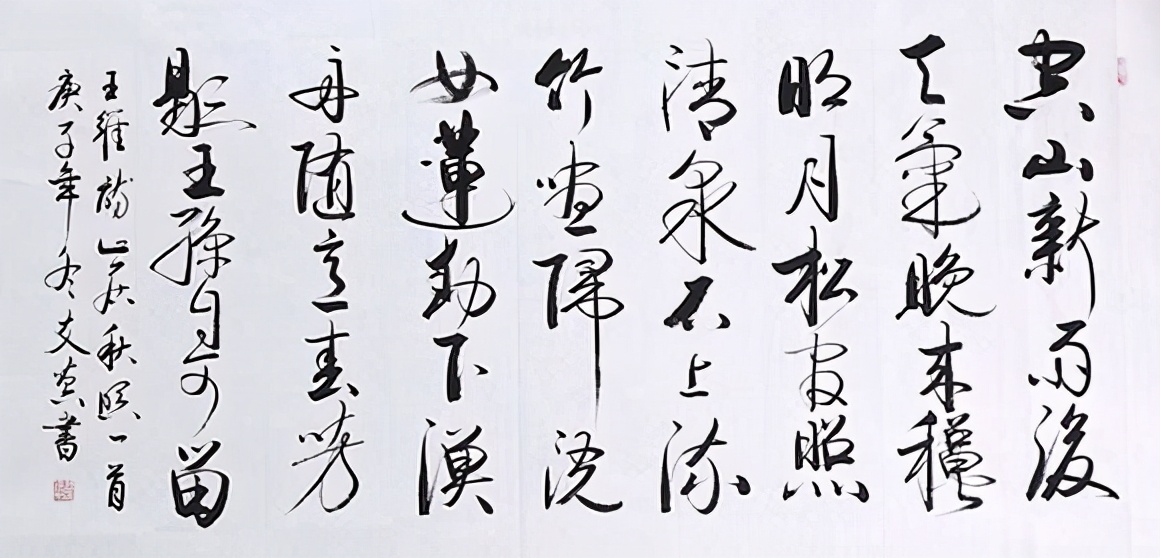 空山新雨後
天氣晚來穐
明月松間照
清泉石上流
竹喧歸浣
女蓮動下漁
舟隨意春芳
歇王孫自可留
王維詩山居秋暝一首
庚子年冬書